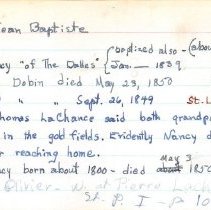 ean Baptiste
cy "of The Dalles" { baptized also - (abou
Jan. — 1839
Dobin died May 23, 1850
" " Sept. 26, 1849 St. L
homas LaChance said both grandp
in the gold fields. Evidently Nancy d
r reaching home.
May 3
cy born about 1800 - died about 1850
Olivier. W. at Pierre Lach
St. P I - p 10